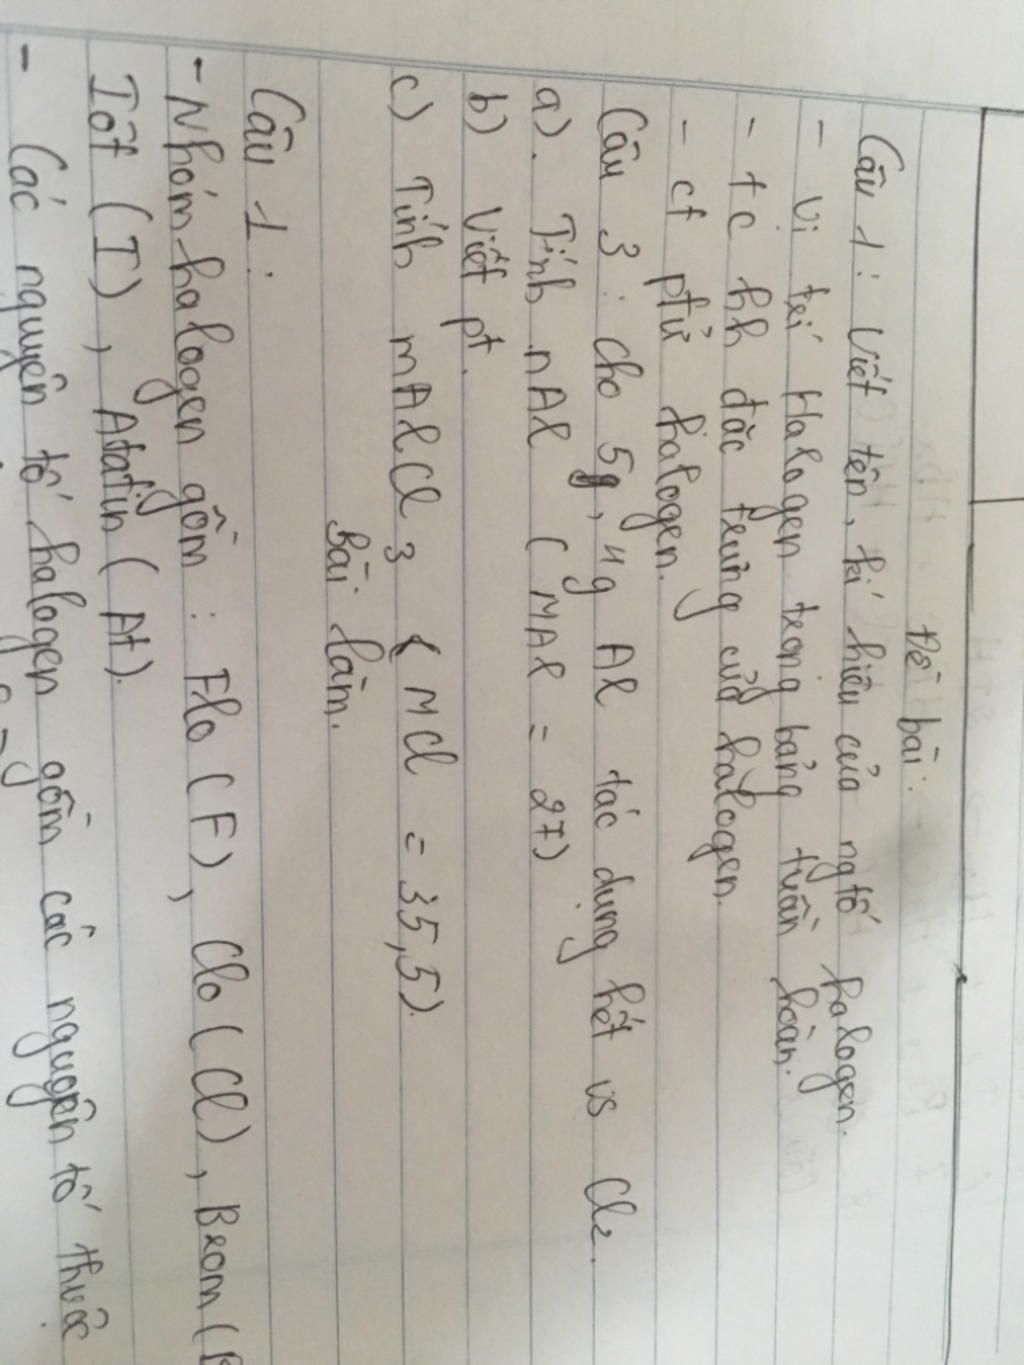 Đề bài:
Câu 1: Viết tên, kí hiệu của ngtố halogen.
- vị trí Halogen trong bảng tuần hoàn.
- tc hh đặc trưng của halogen.
- ct ptử halogen.
Câu 3: Cho 5,4g Al tác dụng hết vs Cl2.
a). Tính nAl (MAl = 27)
b) Viết pt.
c) Tính mAlCl3 (MCl = 35,5).
Bài làm.
Câu 1:
- Nhóm halogen gồm: Flo (F), Clo (Cl), Brom (B
Iôt (I), Atatin (At).
- Các nguyên tố halogen gồm các nguyên tố thuộc